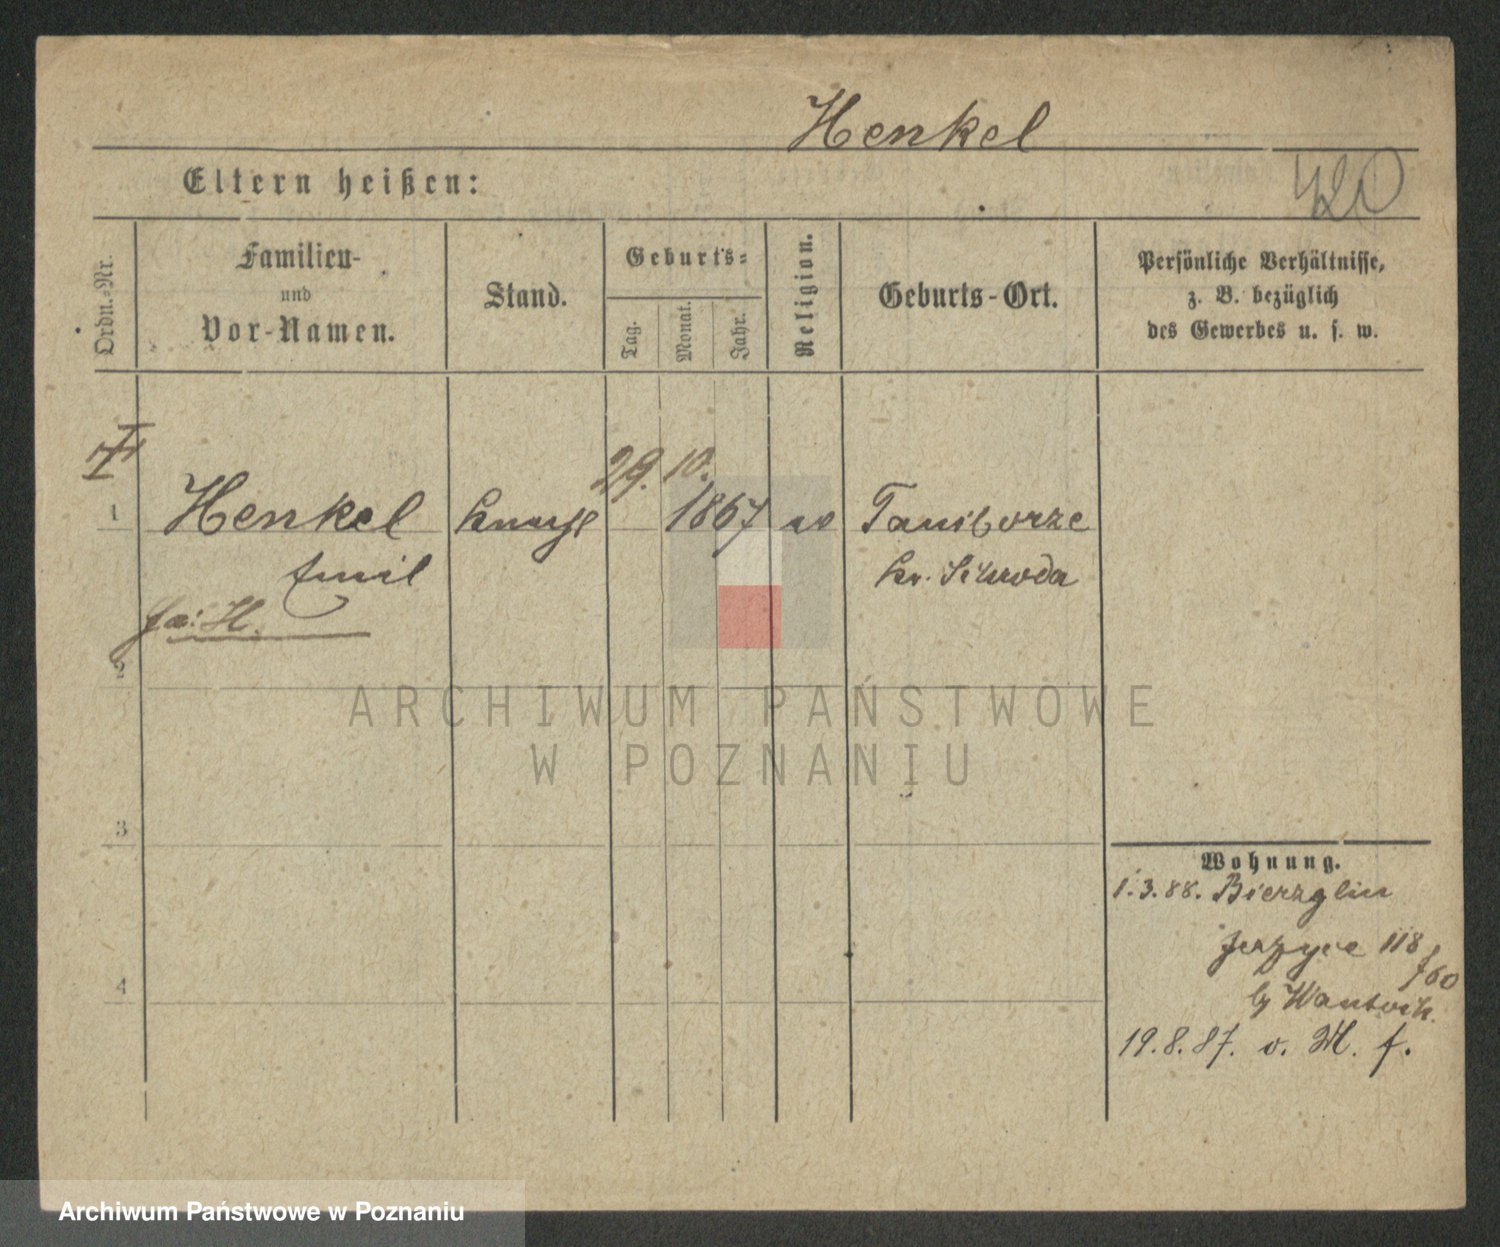 Henkel
Eltern heißen:
420
Ordn.-Nr.
Familien-
und
Vor-Namen.
Stand.
Geburts-
Tag.
Monat.
Jahr.
Religion.
Geburts-Ort.
Persönliche Verhältnisse,
z. B. bezüglich
des Gewerbes u. s. w.
29. 10.
1 Henkel Knecht 1867 ev Taniborze
Emil Kr. Schroda
2
ARCHIWUM PAŃSTWOWE
W POZNANIU
3
Wohnung.
1.3.88. Bierzglin
Jerzyce 118
/60
4
19.8.87. v. M. f.
Archiwum Państwowe w Poznaniu